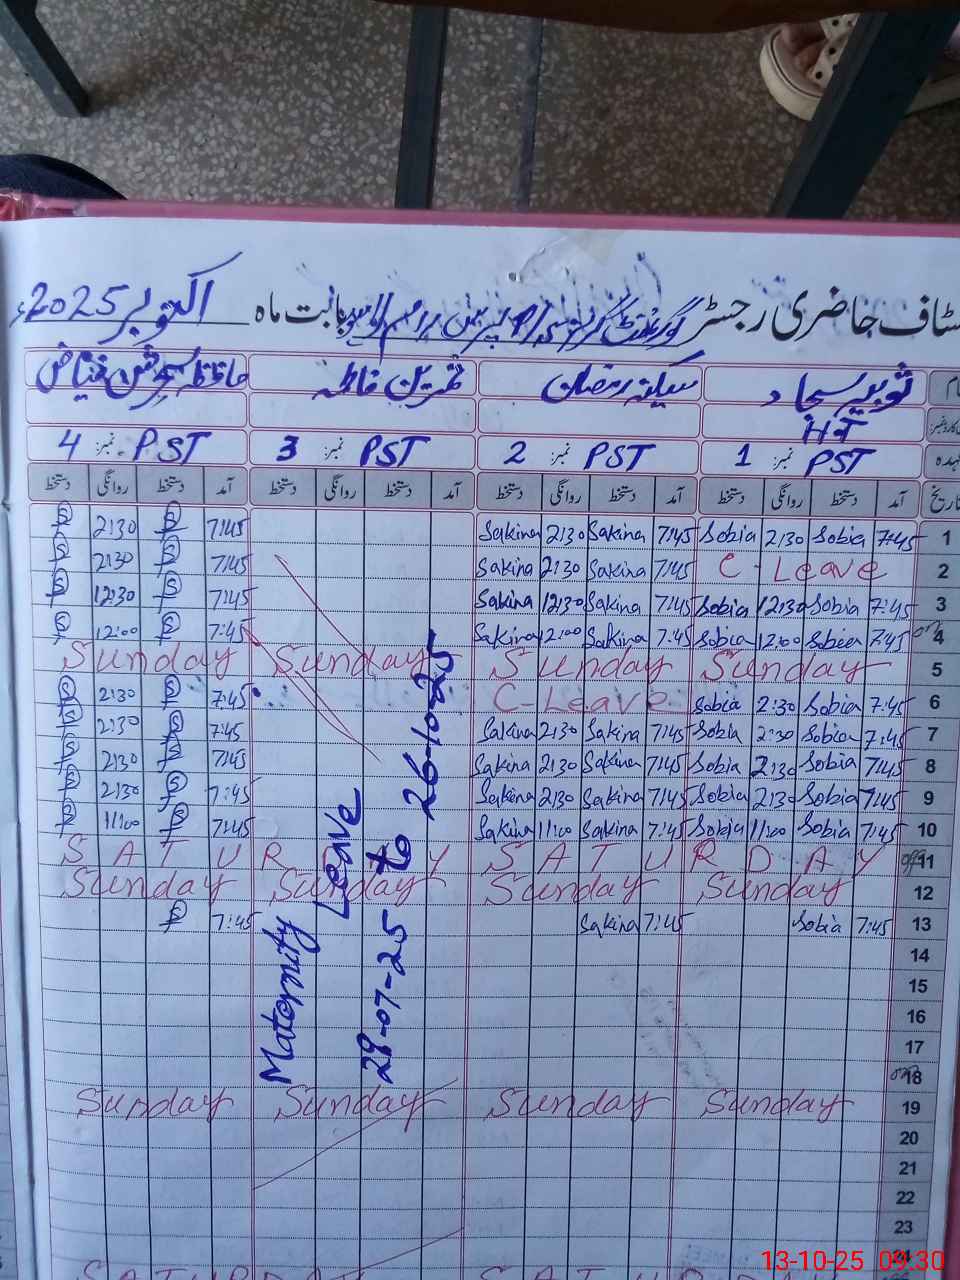 سٹاف حاضری رجسٹر گورنمنٹ گرلز پرائمری بابت ماہ اکتوبر 2025ء
نام ثوبیہ سجاد سکینہ رمضان ثمرین فاطمہ حافظہ سحرش فیاض
HT
عہدہ PST نمبر: 1 PST نمبر: 2 PST نمبر: 3 PST نمبر: 4
تاریخ آمد دستخط روانگی دستخط آمد دستخط روانگی دستخط آمد دستخط روانگی دستخط آمد دستخط روانگی دستخط
1 7:45 Sobia 2:30 Sobia 7:45 Sakina 2:30 Sakina 7:45 2:30
2 C-Leave 7:45 Sakina 2:30 Sakina 7:45 2:30
3 7:45 Sobia 12:30 Sobia 7:45 Sakina 12:30 Sakina 7:45 12:30
4 7:45 Sobia 12:00 Sobia 7:45 Sakina 12:00 Sakina 7:45 12:00
5 Sunday Sunday Sunday Sunday
6 7:45 Sobia 2:30 Sobia C-Leave 7:45 2:30
7 7:45 Sobia 2:30 Sobia 7:45 Sakina 2:30 Sakina 7:45 2:30
8 7:45 Sobia 2:30 Sobia 7:45 Sakina 2:30 Sakina 7:45 2:30
9 7:45 Sobia 2:30 Sobia 7:45 Sakina 2:30 Sakina 7:45 2:30
10 7:45 Sobia 11:00 Sobia 7:45 Sakina 11:00 Sakina 7:45 11:00
off 11 SATURDAY SATURDAY
12 Sunday Sunday Sunday Sunday
13 7:45 Sobia 7:45 Sakina 7:45
14
15
16
17
18
19 Sunday Sunday Sunday Sunday
20
21
22
23
24
Maternity Leave
29-07-25 to 26-10-25
13-10-25 09:30